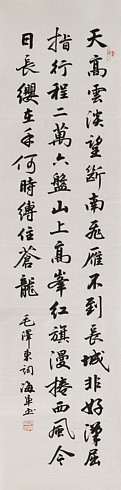 天高雲淡望斷南飛雁不到長城非好漢屈
指行程二萬六盤山上高峯紅旗漫捲西風今
日長纓在手何時縛住蒼龍
毛澤東詞海军书